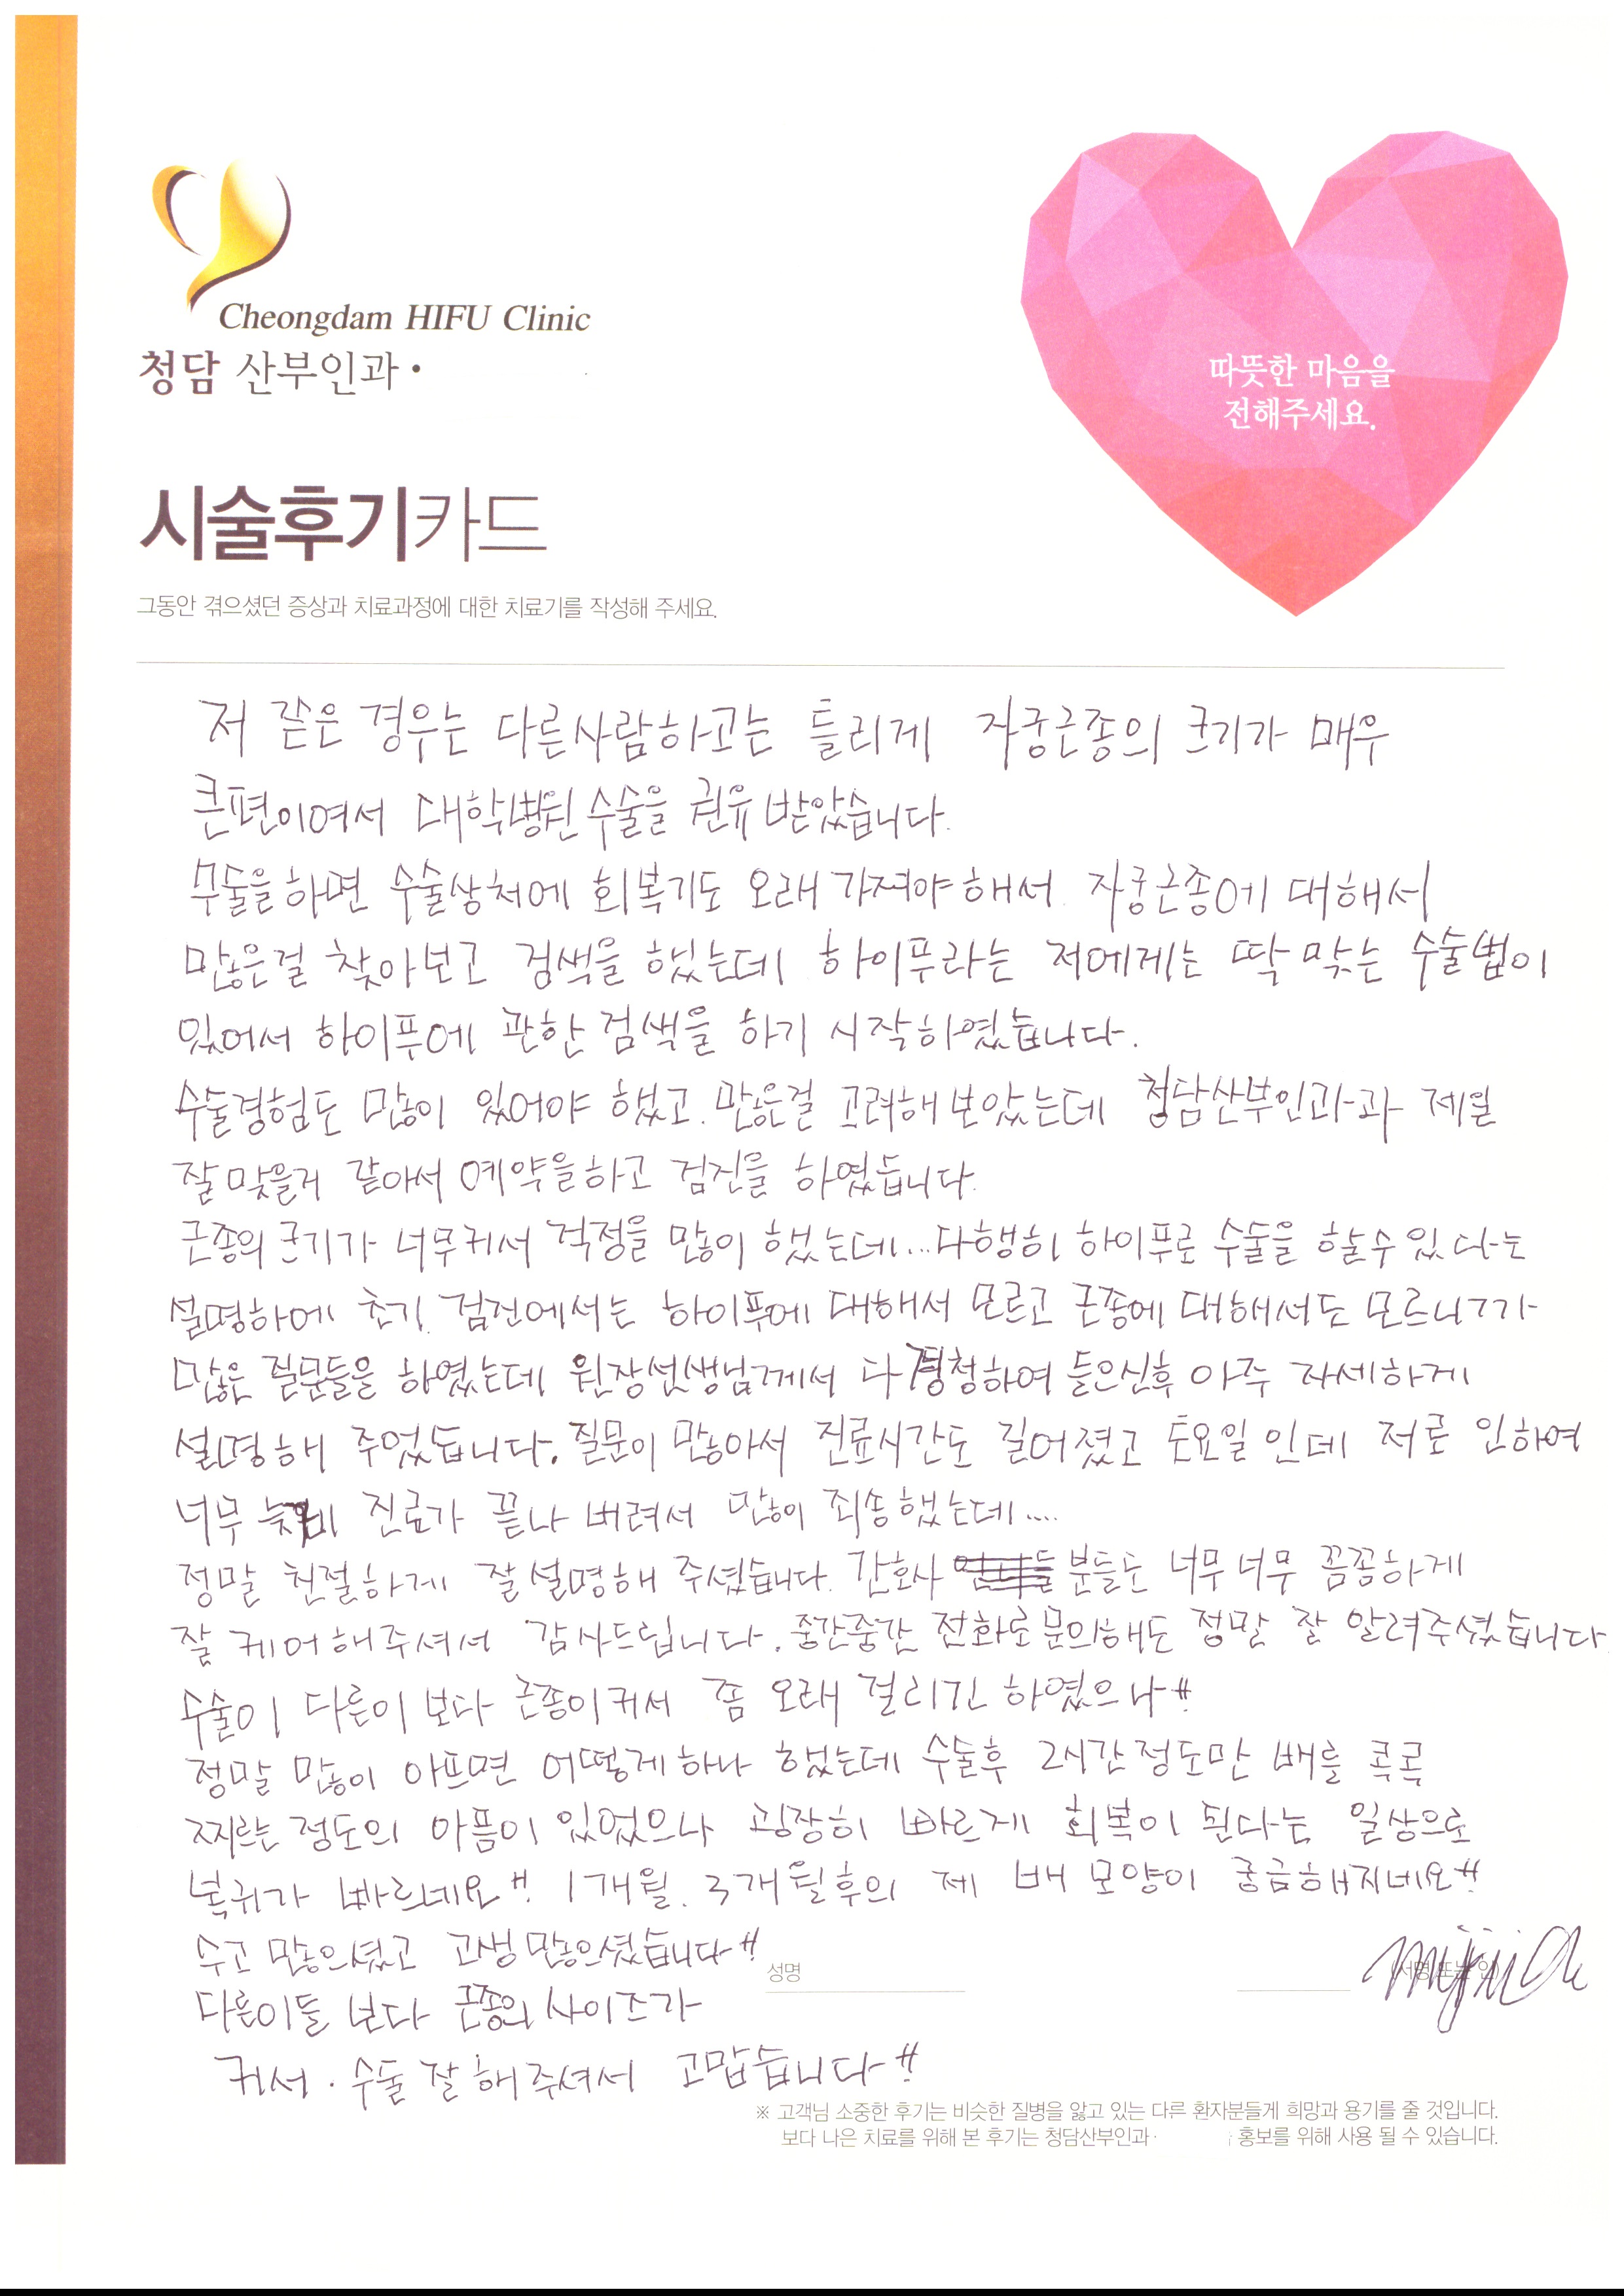 Cheongdam HIFU Clinic
청담 산부인과·
따뜻한 마음을
전해주세요.
시술후기카드
그동안 겪으셨던 증상과 치료과정에 대한 치료기를 작성해 주세요.
저 같은 경우는 다른사람하고는 틀리게 자궁근종의 크기가 매우
큰편이여서 대학병원 수술을 권유 받았습니다.
수술을하면 수술상처에 회복기도 오래 가져야해서. 자궁근종에 대해서
많은걸 찾아보고 검색을 했는데 하이푸라는 저에게는 딱 맞는 수술법이
있어서 하이푸에 관한 검색을 하기 시작하였습니다.
수술경험도 많이 있어야 했고. 많은걸 고려해보았는데 청담산부인과과 제일
잘맞을거 같아서 예약을하고 검진을 하였습니다.
근종의 크기가 너무커서 걱정을 많이 했는데...다행히 하이푸로 수술을 할수있다는
설명하에 초기. 검진에서는 하이푸에 대해서 모르고 근종에 대해서도 모르니가
많은 질문들을 하였는데 원장선생님께서 다 경청하여 들으신후 아주 자세하게
설명해 주었습니다. 질문이 많아서 진료시간도 길어졌고 토요일인데 저로 인하여
너무 진료가 끝나 버려서 많이 죄송했는데....
정말 친절하게 잘설명해 주셨습니다. 간호사 분들도 너무너무 꼼꼼하게
잘 케어해주셔서 감사드립니다. 중간중간 전화로문의해도 정말 잘 알려주셨습니다
수술이 다른이 보다 근종이커서 쫌 오래 걸리긴 하였으나!!
정말 많이 아프면 어떻게하나 했는데 수술후 2시간정도만 배를 콕콕
찌르는 정도의 아픔이 있었으나 굉장히 빠르게 회복이 된다는 일상으로
복귀가 빠르네요!! 1개월. 3개월후의 제 배 모양이 궁금해지네요!!
수고 많으셨고 고생많으셨습니다!!
성명 (서명 또는 인)
다른이들 보다 근종의 사이즈가
커서. 수술잘해주셔서 고맙습니다!!
※ 고객님 소중한 후기는 비슷한 질병을 앓고 있는 다른 환자분들게 희망과 용기를 줄 것입니다.
보다 나은 치료를 위해 본 후기는 청담산부인과· 홍보를 위해 사용 될 수 있습니다.